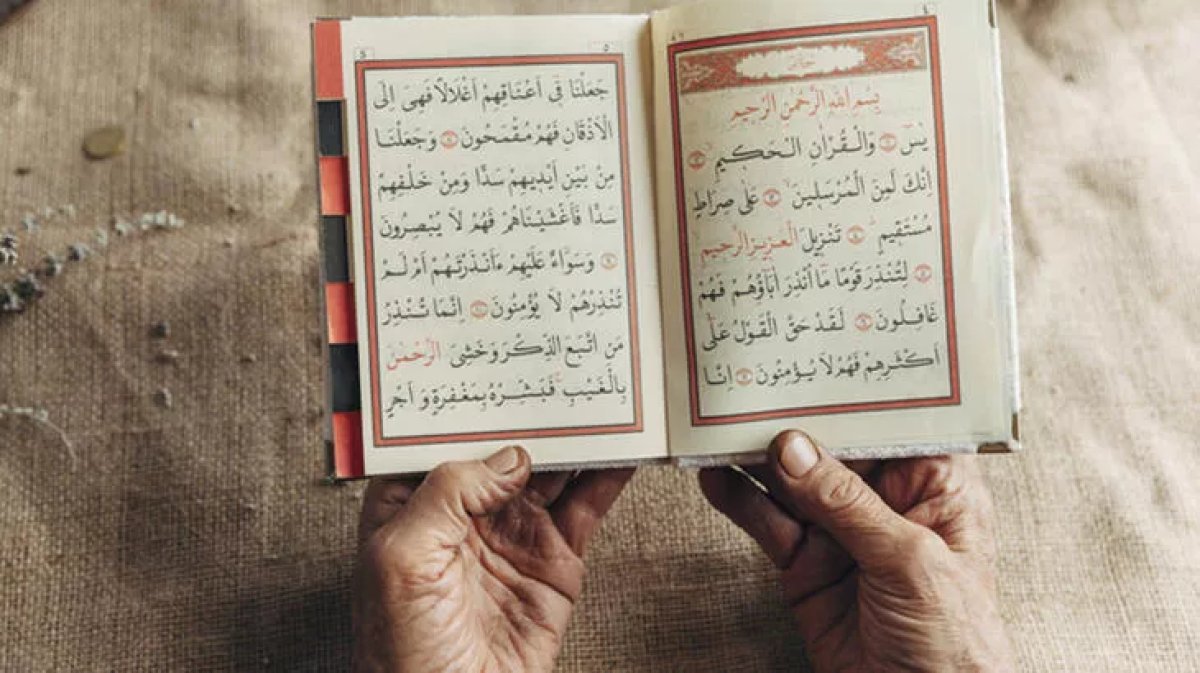 ٤
بِسْمِ اللهِ الرَّحْمٰنِ الرَّحِيمِ
يٰسٓ وَالْقُرْاٰنِ الْحَكِيمِ
اِنَّكَ لَمِنَ الْمُرْسَلِينَ عَلٰى صِرَاطٍ
مُسْتَقِيمٍ تَنْزِيلَ الْعَزِيزِ الرَّحِيمِ
لِتُنْذِرَ قَوْمًا مَٓا اُنْذِرَ اٰبَٓاؤُهُمْ فَهُمْ
غَافِلُونَ لَقَدْ حَقَّ الْقَوْلُ عَلٰٓى
اَكْثَرِهِمْ فَهُمْ لَا يُؤْمِنُونَ اِنَّا
٥
جَعَلْنَا فِٓى اَعْنَاقِهِمْ اَغْلَالًا فَهِىَ اِلَى
الْاَذْقَانِ فَهُمْ مُقْمَحُونَ وَجَعَلْنَا
مِنْ بَيْنِ اَيْدِيهِمْ سَدًّا وَمِنْ خَلْفِهِمْ
سَدًّا فَاَغْشَيْنَاهُمْ فَهُمْ لَا يُبْصِرُونَ
وَسَوَٓاءٌ عَلَيْهِمْ ءَاَنْذَرْتَهُمْ اَمْ لَمْ
تُنْذِرْهُمْ لَا يُؤْمِنُونَ اِنَّمَا تُنْذِرُ
مَنِ اتَّبَعَ الذِّكْرَ وَخَشِىَ الرَّحْمٰنَ
بِالْغَيْبِ فَبَشِّرْهُ بِمَغْفِرَةٍ وَاَجْرٍ